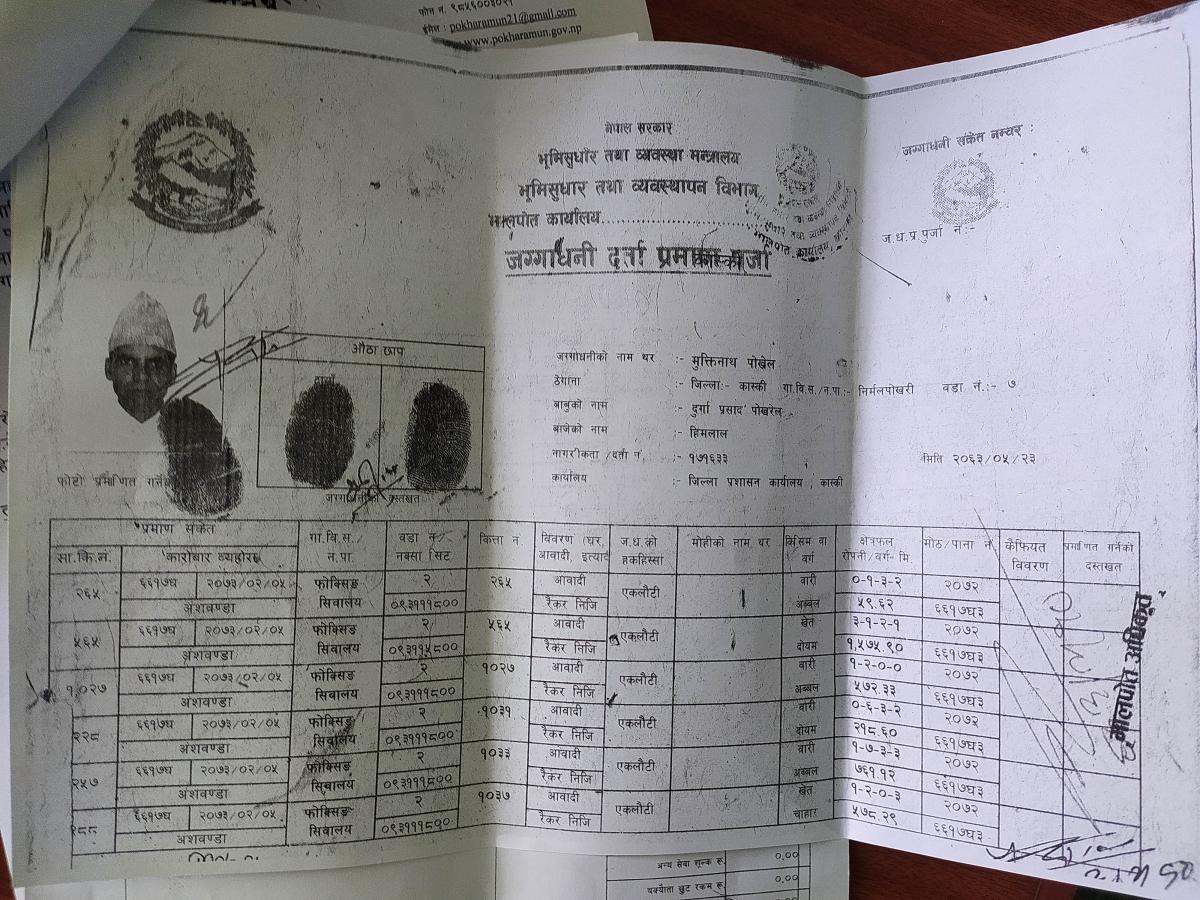 फोन नं. ९८५६००३०२१
ईमेल : pokharamun21@gmail.com
www.pokharamun.gov.np
नेपाल सरकार
भूमिसुधार तथा व्यवस्था मन्त्रालय
भूमिसुधार तथा व्यवस्थापन विभाग
मालपोत कार्यालय
जग्गाधनी दर्ता प्रमाण पूर्जा
कास्की
जग्गाधनी संकेत नम्बर :
ज.ध.प्र.पुर्जा नं:-
औठा छाप
फोटो प्रमाणित गर्नेको
जग्गाधनीको दस्तखत
जग्गाधनीको नाम थर :- मुक्तिनाथ पोख्रेल
ठेगाना :- जिल्ला:- कास्की गा.वि.स./न.पा:- निर्मलपोखरी वडा नं.:- ७
बाबुको नाम :- दुर्गा प्रसाद पोखरेल
बाजेको नाम :- हिमलाल
नागरीकता /दर्ता नं. :- १७१६३३ मिति २०६३/०५/२३
कार्यालय :- जिल्ला प्रशासन कार्यालय , कास्की
प्रमाण संकेत
सा.कि.नं. कारोबार व्यहोरा गा.वि.स./ न.पा. वडा नं/ नक्सा सिट कित्ता नं. विवरण (घर, आवादी, इत्यादि ज.ध.को हकहिस्सा मोहीको नाम थर किसिम वा वर्ग क्षेत्रफल रोपनी/वर्ग- मि. मोठ/पाना नं कैफियत विवरण प्रमाणित गर्नेको दस्तखत
२६५ ६६१७घ २०७३/०२/०५ फोक्सिङ २ २६५ आवादी एकलौटी वारी ०-१-३-२ २०७२
अंशवण्डा सिवालय ०९३१११८०० रैकर निजि अब्बल ५९.६२ ६६१७घ३
५६५ ६६१७घ २०७३/०२/०५ फोक्सिङ २ ५६५ आवादी एकलौटी खेत ३-१-२-१ २०७२
अंशवण्डा सिवालय ०९३११५८०० रैकर निजि दोयम १,५७५.९० ६६१७घ३
१,०२७ ६६१७घ २०७३/०२/०५ फोक्सिङ २ १०२७ आवादी एकलौटी वारी १-२-०-० २०७२
अंशवण्डा सिवालय ०९३१११८०० रैकर निजि अब्बल ५७२.३३ ६६१७घ३
२२८ ६६१७घ २०७३/०२/०५ फोक्सिङ २ १०३१ आवादी एकलौटी वारी ०-६-३-२ २०७२
अंशवण्डा सिवालय ०९३१११८०० रैकर निजि दोयम २१८.६० ६६१७घ३
२५७ ६६१७घ २०७३/०२/०५ फोक्सिङ २ १०३३ आवादी एकलौटी वारी १-७-३-३ २०७२
अंशवण्डा सिवालय ०९३१११८०० रैकर निजि अब्बल ७६१.१२ ६६१७घ३
२८८ ६६१७घ २०७३/०२/०५ फोक्सिङ २ १०३७ आवादी एकलौटी खेत १-२-०-३ २०७२
अंशवण्डा सिवालय ०९३१११८०० रैकर निजि चाहार ५७८.२९ ६६१७घ३
मालपोत अधिकृत
अन्य सेवा शुल्क रु. ०.००
बक्यौता छुट रकम रु. ०.००